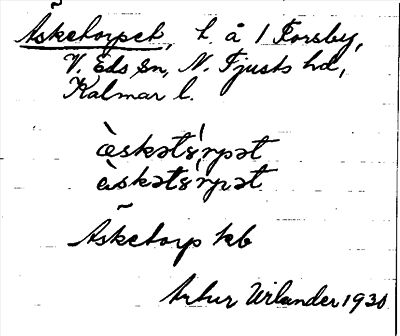 Äsketorpet, t. å 1 Forsby,
V. Eds sn, N. Tjusts hd,
Kalmar l.
æ̀skətɞ́rpət
æ̀skətɞ́rpət
Äsketorp kb
Artur Wilander 1930